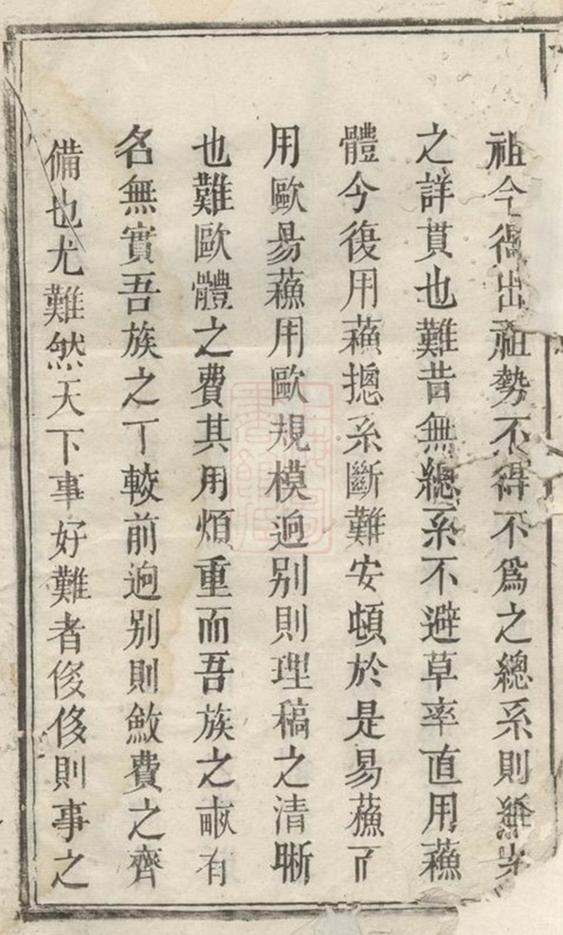 祖今得出祖勢不得不爲之總系則繼
之詳貫也難昔無總系不避草率直用蘓
體今復用蘓摠系斷難安頓於是易蘓而
用歐昜蘓用歐規模逈别則理稿之清晰
也難歐體之費其用煩重而吾族之畞有
名無實吾族之丁較前逈别則斂費之齊
備也尤難然天下事好難者俊俊則事之